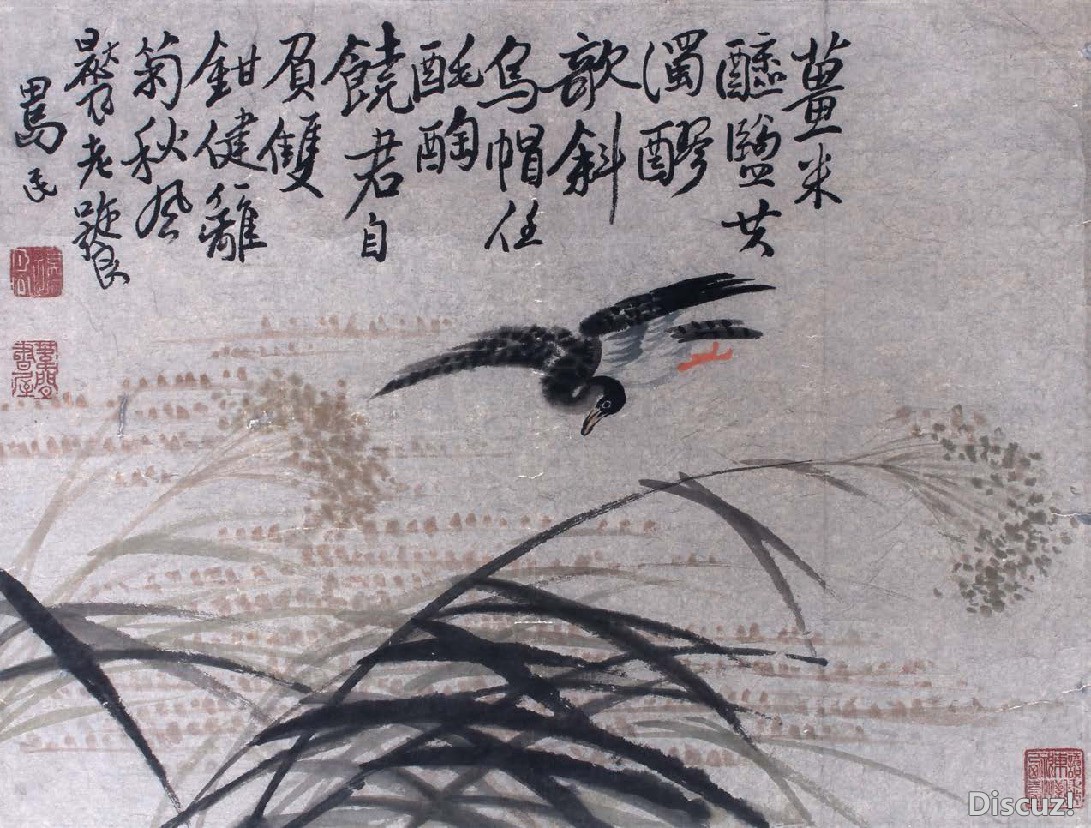 薑米
醯鹽共
濁醪
欹斜
烏帽任
酕醄
饒君自
負雙
鉗健籬
菊秋風
老饕
民
Discuz!